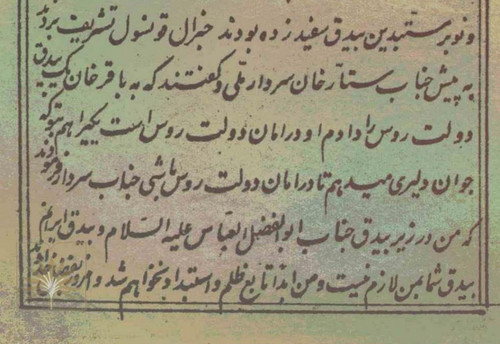 و نوبر مستبدین بیدق سفید زده بودند جنرال قونسول تشریف بردند
به پیش جناب ستارخان سردار ملی و گفتند که به باقرخان یک بیدق
دولت روس را دادم او در امان دولت روس است یکی را هم بتو که
جوان دلیری میدهم تا در امان دولت روس باشی جناب سردار فرمودند
که من در زیر بیدق جناب ابوالفضل العباس علیه السلام و بیدق ایرانم
بیدق شما بمن لازم نیست و من ابدا تابع ظلم و استبداد نخواهم شد و امروز